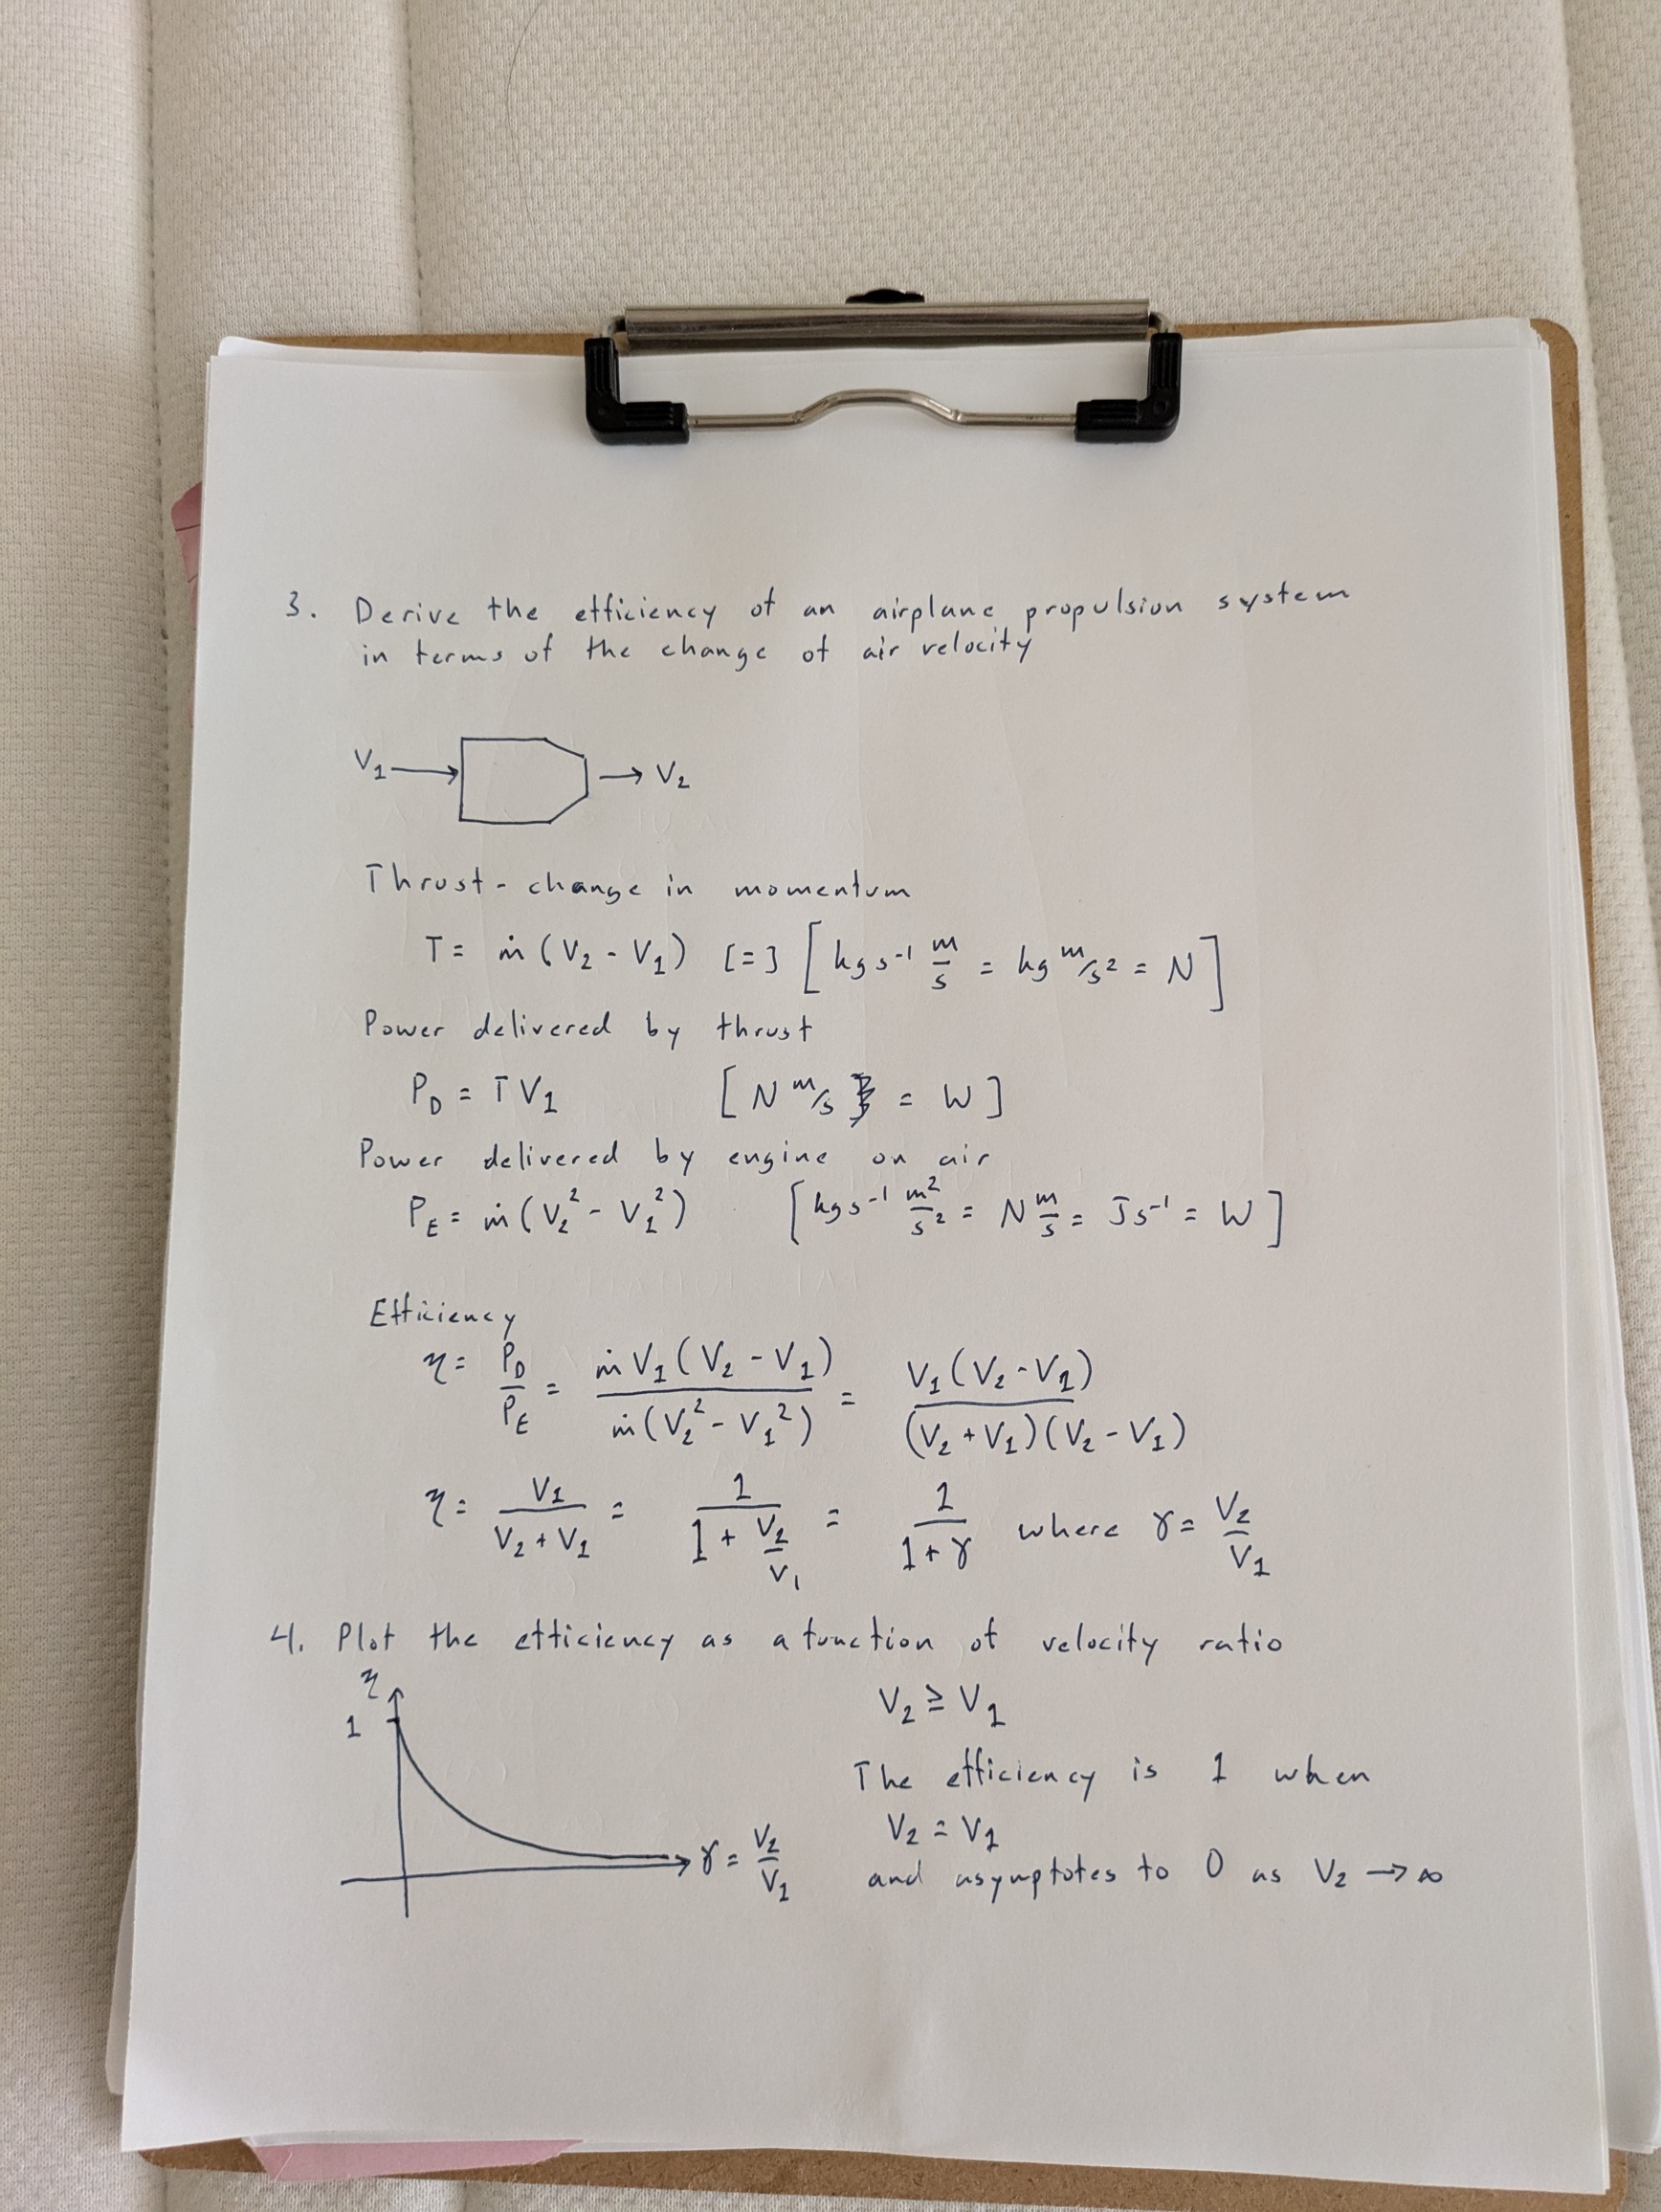 3. Derive the efficiency of an airplane propulsion system
in terms of the change of air velocity
V₁ → → V₂
Thrust - change in momentum
T = ṁ (V₂ - V₁) [=] [kg s⁻¹ m/s = kg m/s² = N]
Power delivered by thrust
P_D = T V₁ [N m/s = W]
Power delivered by engine on air
P_E = ṁ (V₂² - V₁²) [kg s⁻¹ m²/s² = N m/s = J s⁻¹ = W]
Efficiency
η = P_D/P_E = ṁ V₁ (V₂ - V₁) / ṁ (V₂² - V₁²) = V₁ (V₂ - V₁) / (V₂ + V₁)(V₂ - V₁)
η = V₁ / (V₂ + V₁) = 1 / (1 + V₂/V₁) = 1 / (1 + γ) where γ = V₂/V₁
4. Plot the efficiency as a function of velocity ratio
η
1
γ = V₂/V₁
V₂ ≥ V₁
The efficiency is 1 when
V₂ = V₁
and asymptotes to 0 as V₂ → ∞